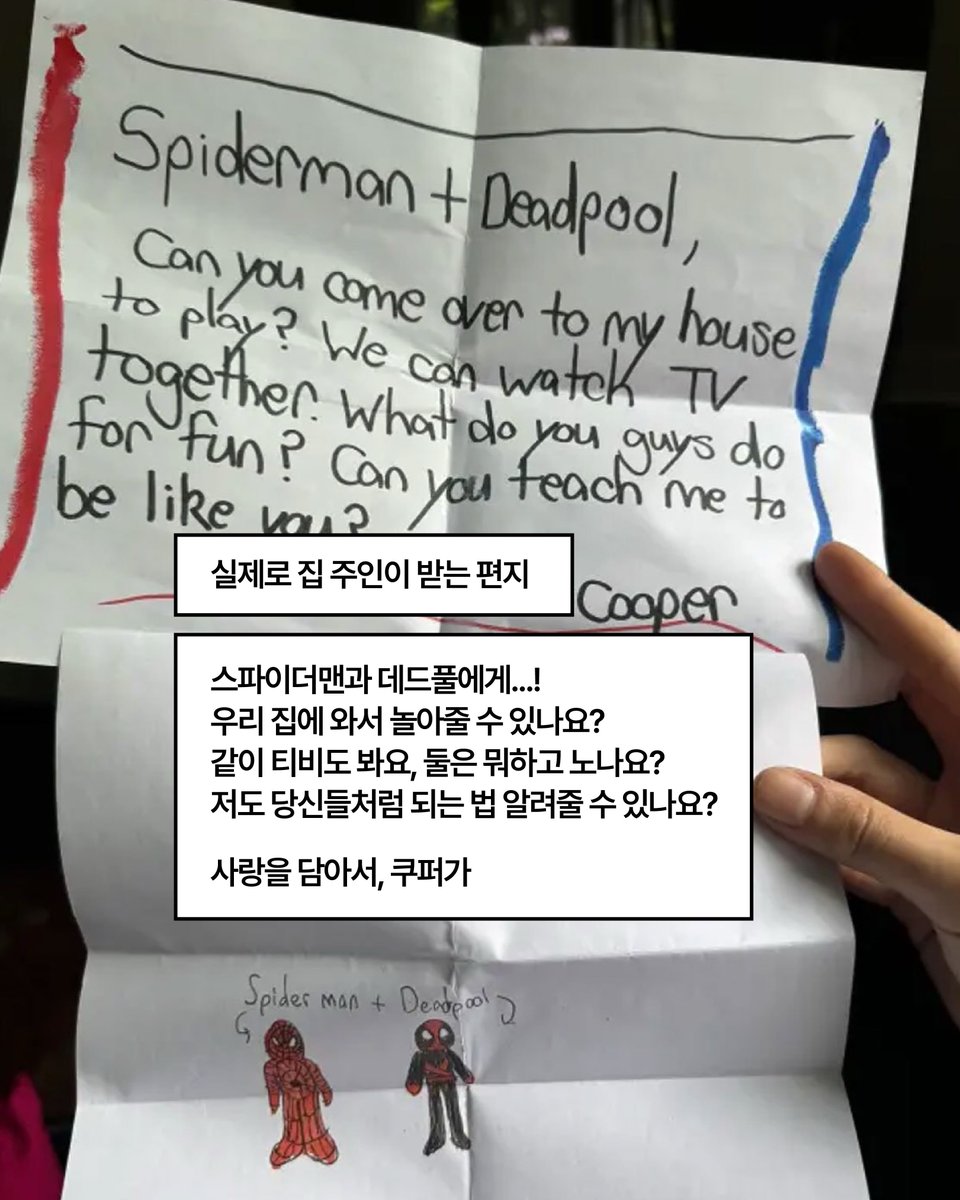 Spiderman + Deadpool,
Can you come over to my house
to play? We can watch TV
together. What do you guys do
for fun? Can you teach me to
be like you?
Cooper
실제로 집 주인이 받는 편지
스파이더맨과 데드풀에게...!
우리 집에 와서 놀아줄 수 있나요?
같이 티비도 봐요, 둘은 뭐하고 노나요?
저도 당신들처럼 되는 법 알려줄 수 있나요?
사랑을 담아서, 쿠퍼가
Spider man + Deadpool